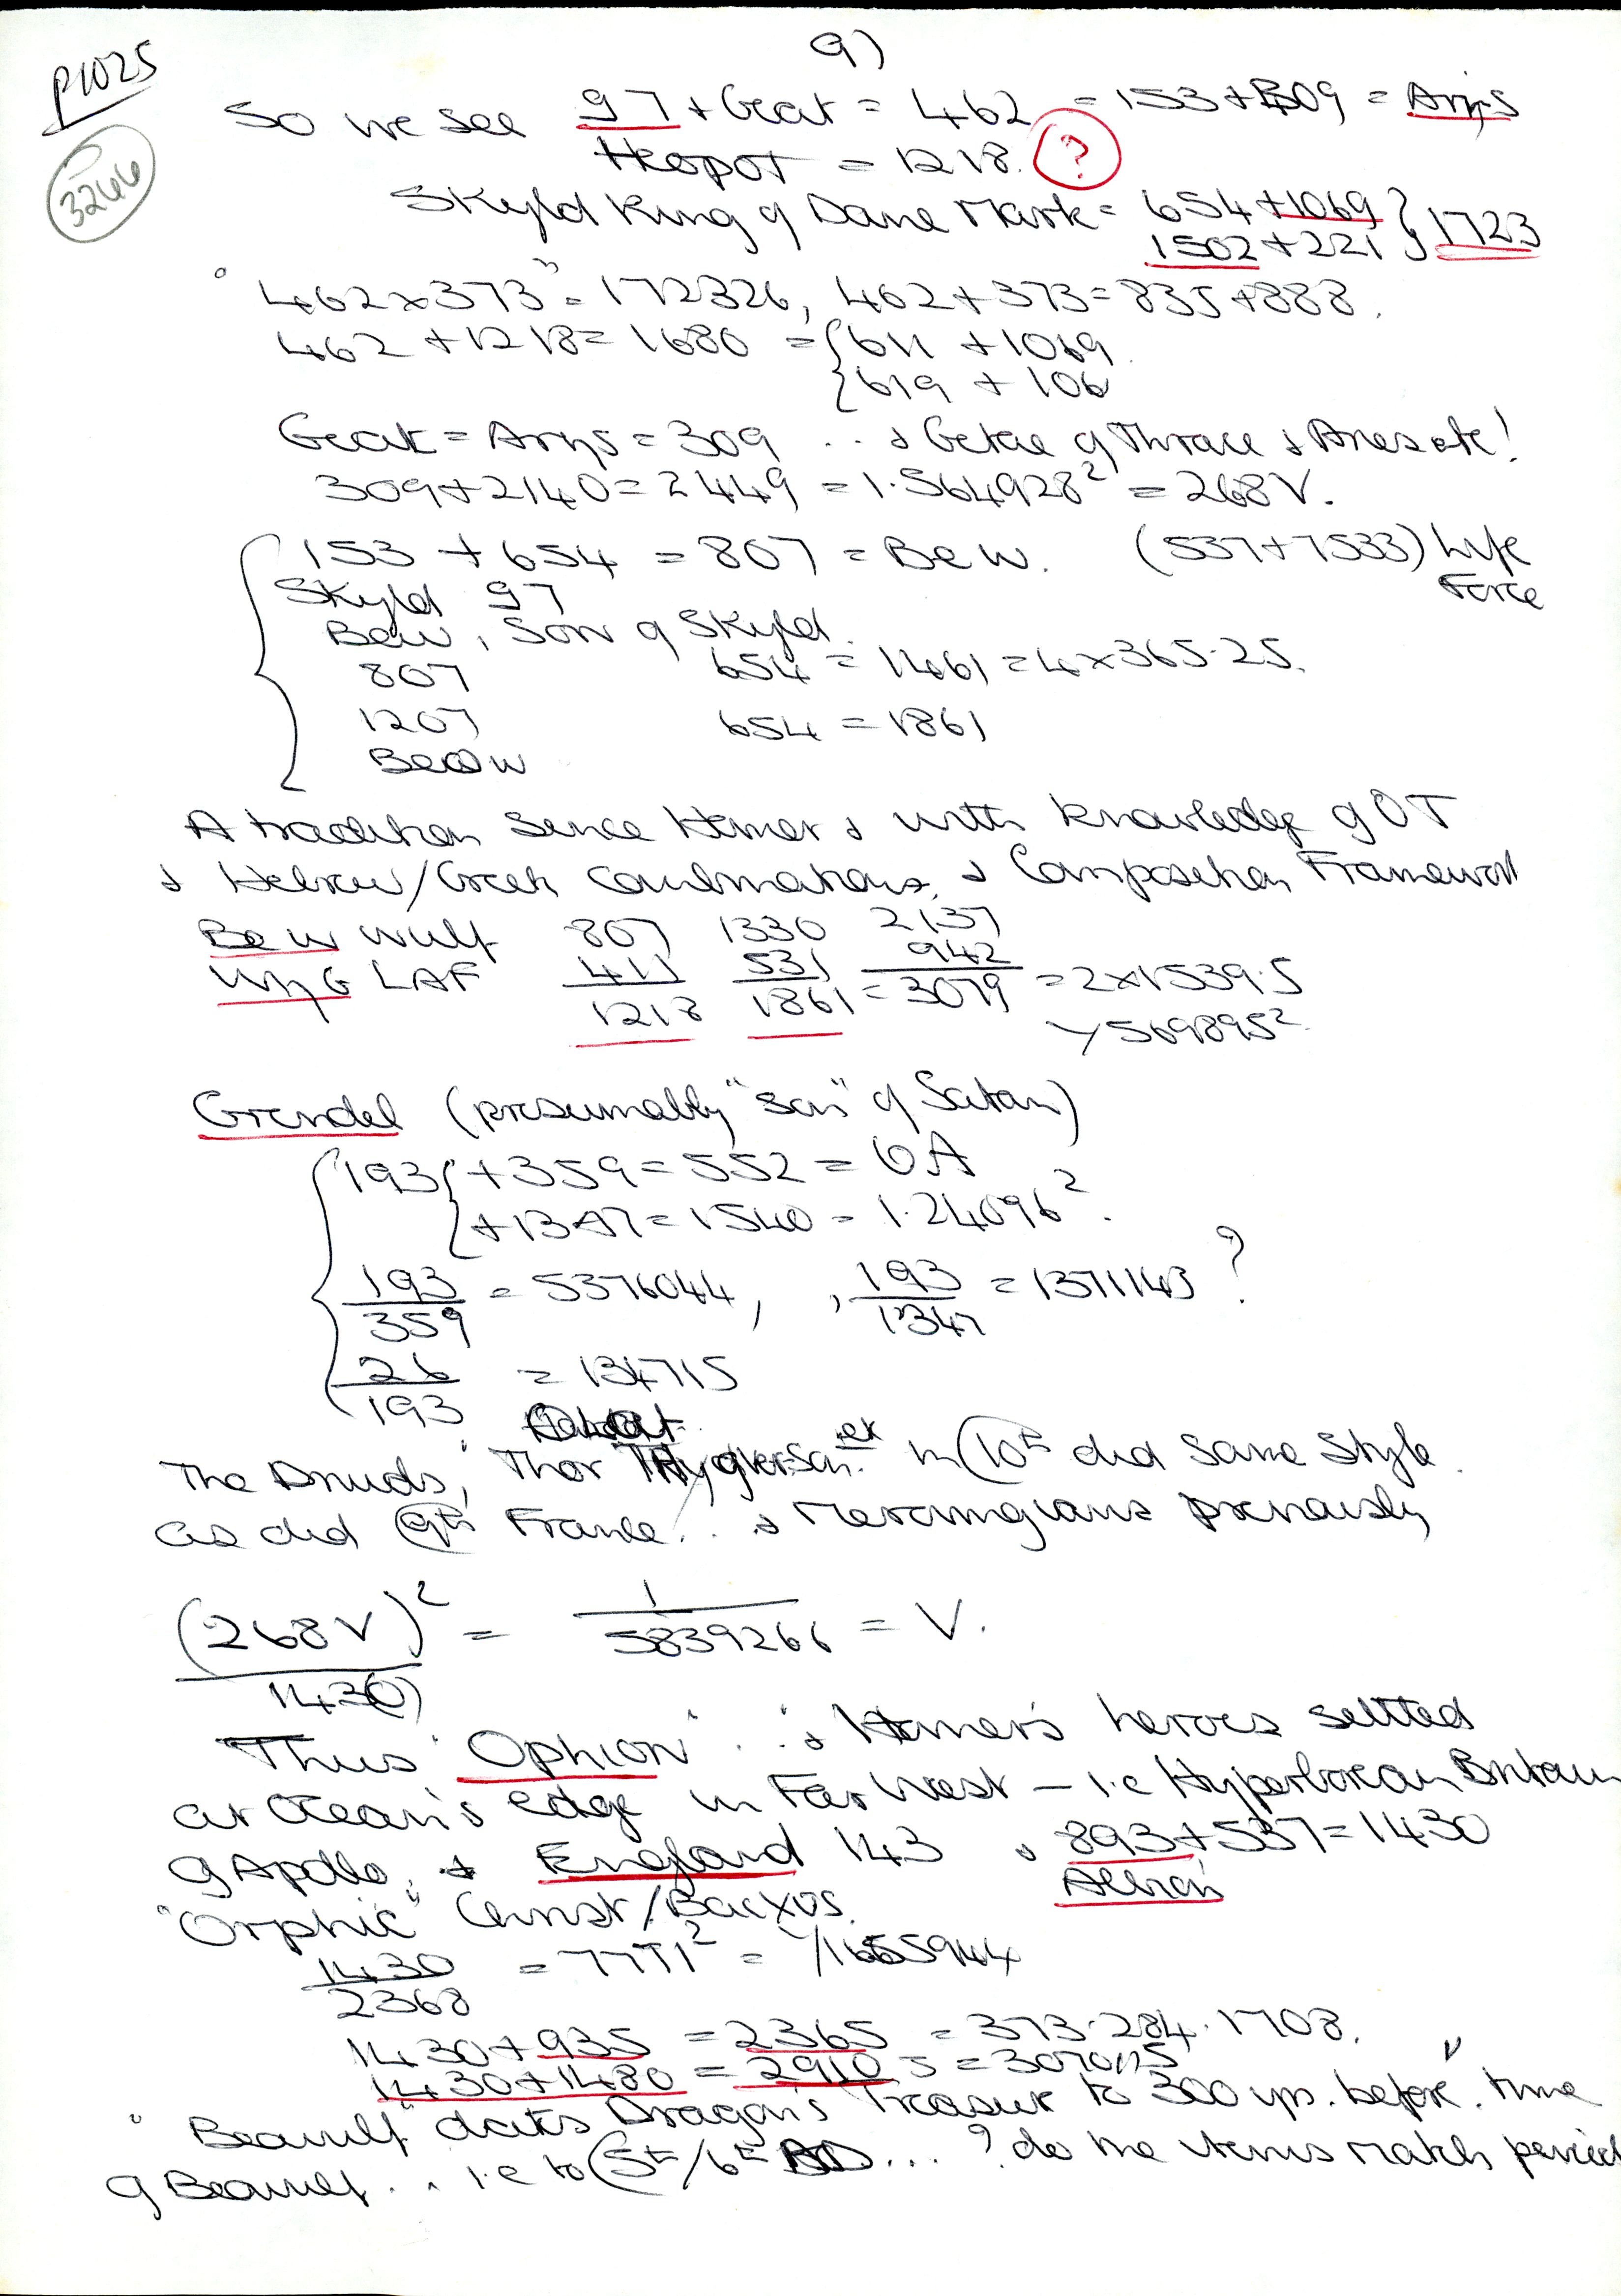 9)
P1025
3266
So we see 97 + Geat = 462 = 153 + 309 = Arys
Heopot = 1218. ?
Skyld King of Dane Mark = 654 + 1069 } 1723
1502 + 221
"462 x 373" = 172326, 462 + 373 = 835 + 888.
462 + 1218 = 1680 = { 611 + 1069
{ 619 + 106
Geat = Arys = 309 ... & Getae of Thrace & Ares etc!
309 + 2140 = 2449 = 1.564928² = 268V.
153 + 654 = 807 = Bew. (537 + 7533) Life Force
Skyld 97
Bew, Son of Skyld.
807 654 = 1461 = 4 x 365.25.
1207 654 = 1861
Beow
A tradition since Homer & with knowledge of OT
& Hebrew/Greek combinations, & Composition Framework
Bew wulf 807 1330 2137
WyG LAF 411 531 942
1218 1861 = 3079 = 2 x 1539.5
569895²
Grendel (presumably "son" of Satan)
193 { + 359 = 552 = OA
{ + 1347 = 1540 = 1.24096².
193/359 = 5376044, , 193/1347 = 1371143 ?
26/193 = 134715
The Druids, Thor in 10th did same style
as did 9th France.. & Merovingians previously
(268V)²/1430 = 1/5839266 = V.
Thus "Ophion" .. & Homer's heroes settled
at Ocean's edge in Far West – i.e Hyperborean Britain
of Apollo, & England 143 & 893 + 537 = 1430
Albion
"Orphic" Christ/Bacxos.
1430/2368 = 77 =
1430 + 935 = 2365 = 373.284.1708.
1430 + 1480 = 2910
"Beowulf" dates Dragon's Treasure to 300 yrs. before time
of Beowulf.. i.e to 5th/6th AD... ? do the items match period